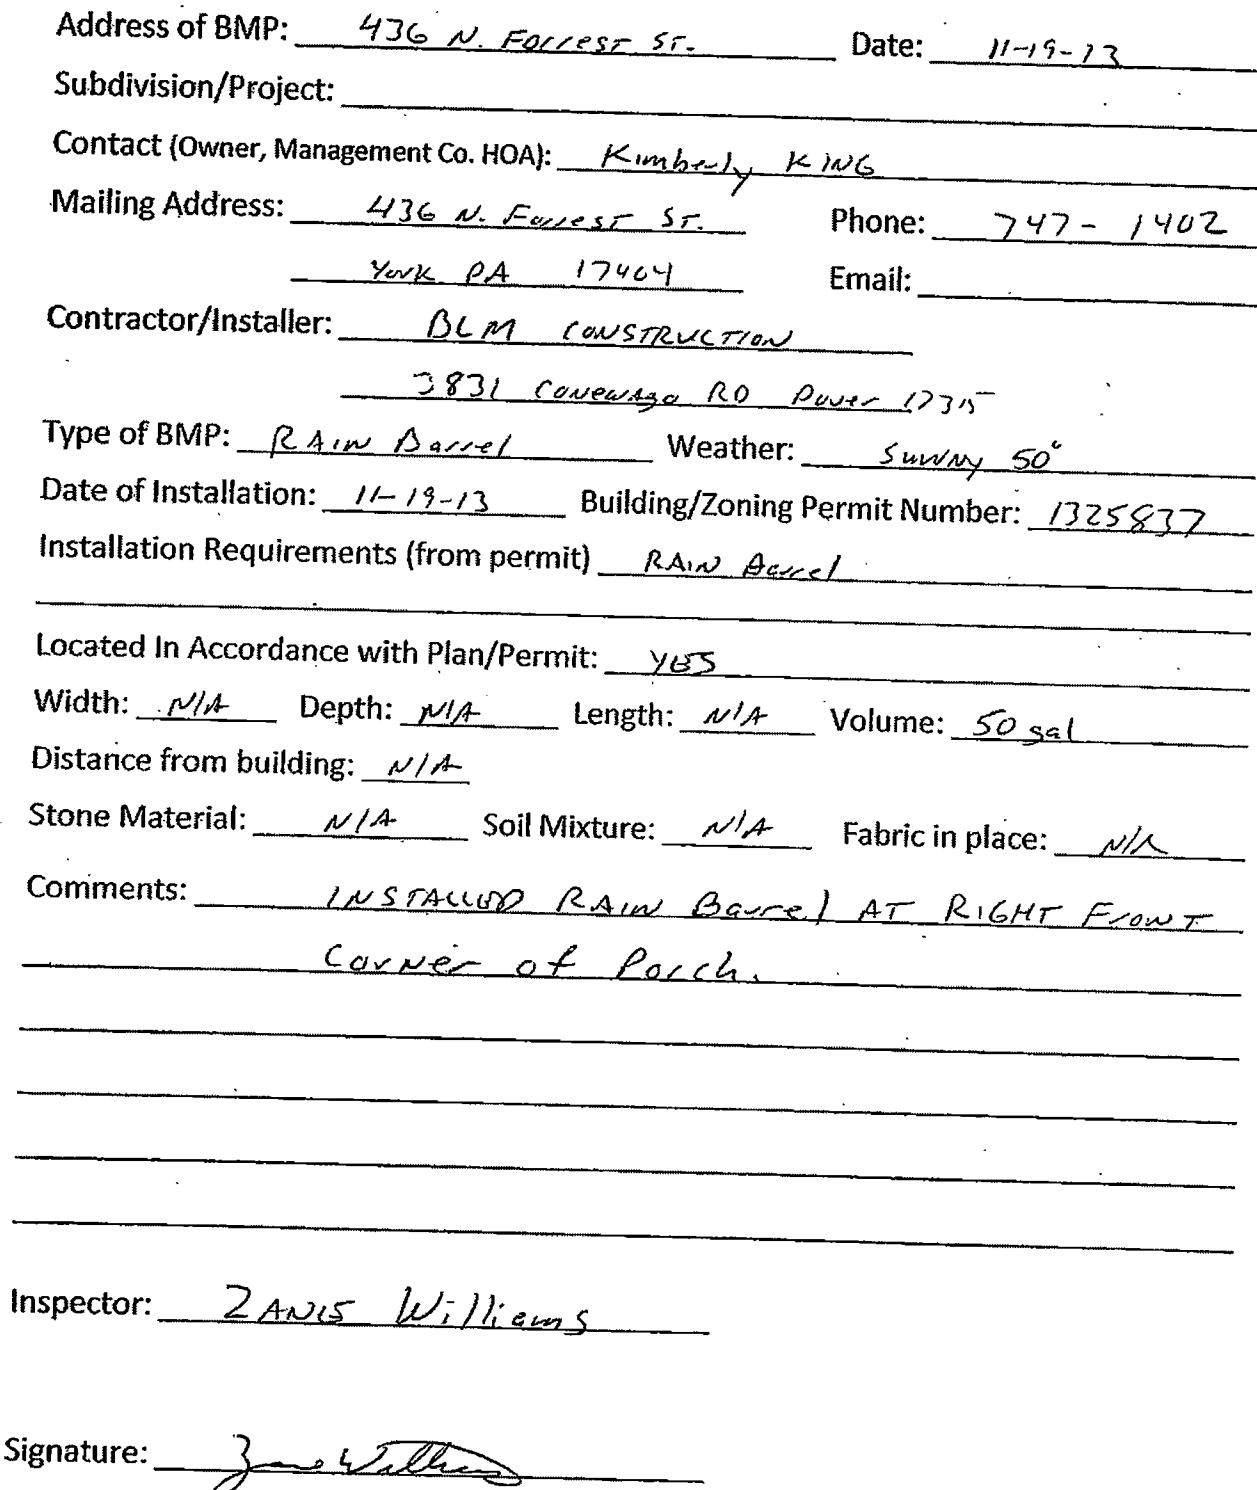 Address of BMP: 436 N. Forrest St. Date: 11-19-13
Subdivision/Project:
Contact (Owner, Management Co. HOA): Kimberly KING
Mailing Address: 436 N. Forrest St. Phone: 747-1402
York PA 17404 Email:
Contractor/Installer: BLM CONSTRUCTION
3831 Conewago RD Dover 17315
Type of BMP: RAIN Barrel Weather: SUNNY 50°
Date of Installation: 11-19-13 Building/Zoning Permit Number: 1325837
Installation Requirements (from permit) RAIN Barrel
Located In Accordance with Plan/Permit: YES
Width: N/A Depth: N/A Length: N/A Volume: 50 gal
Distance from building: N/A
Stone Material: N/A Soil Mixture: N/A Fabric in place: N/A
Comments: INSTALLED RAIN Barrel AT RIGHT Front
Corner of Porch.
Inspector: Williams
Signature: